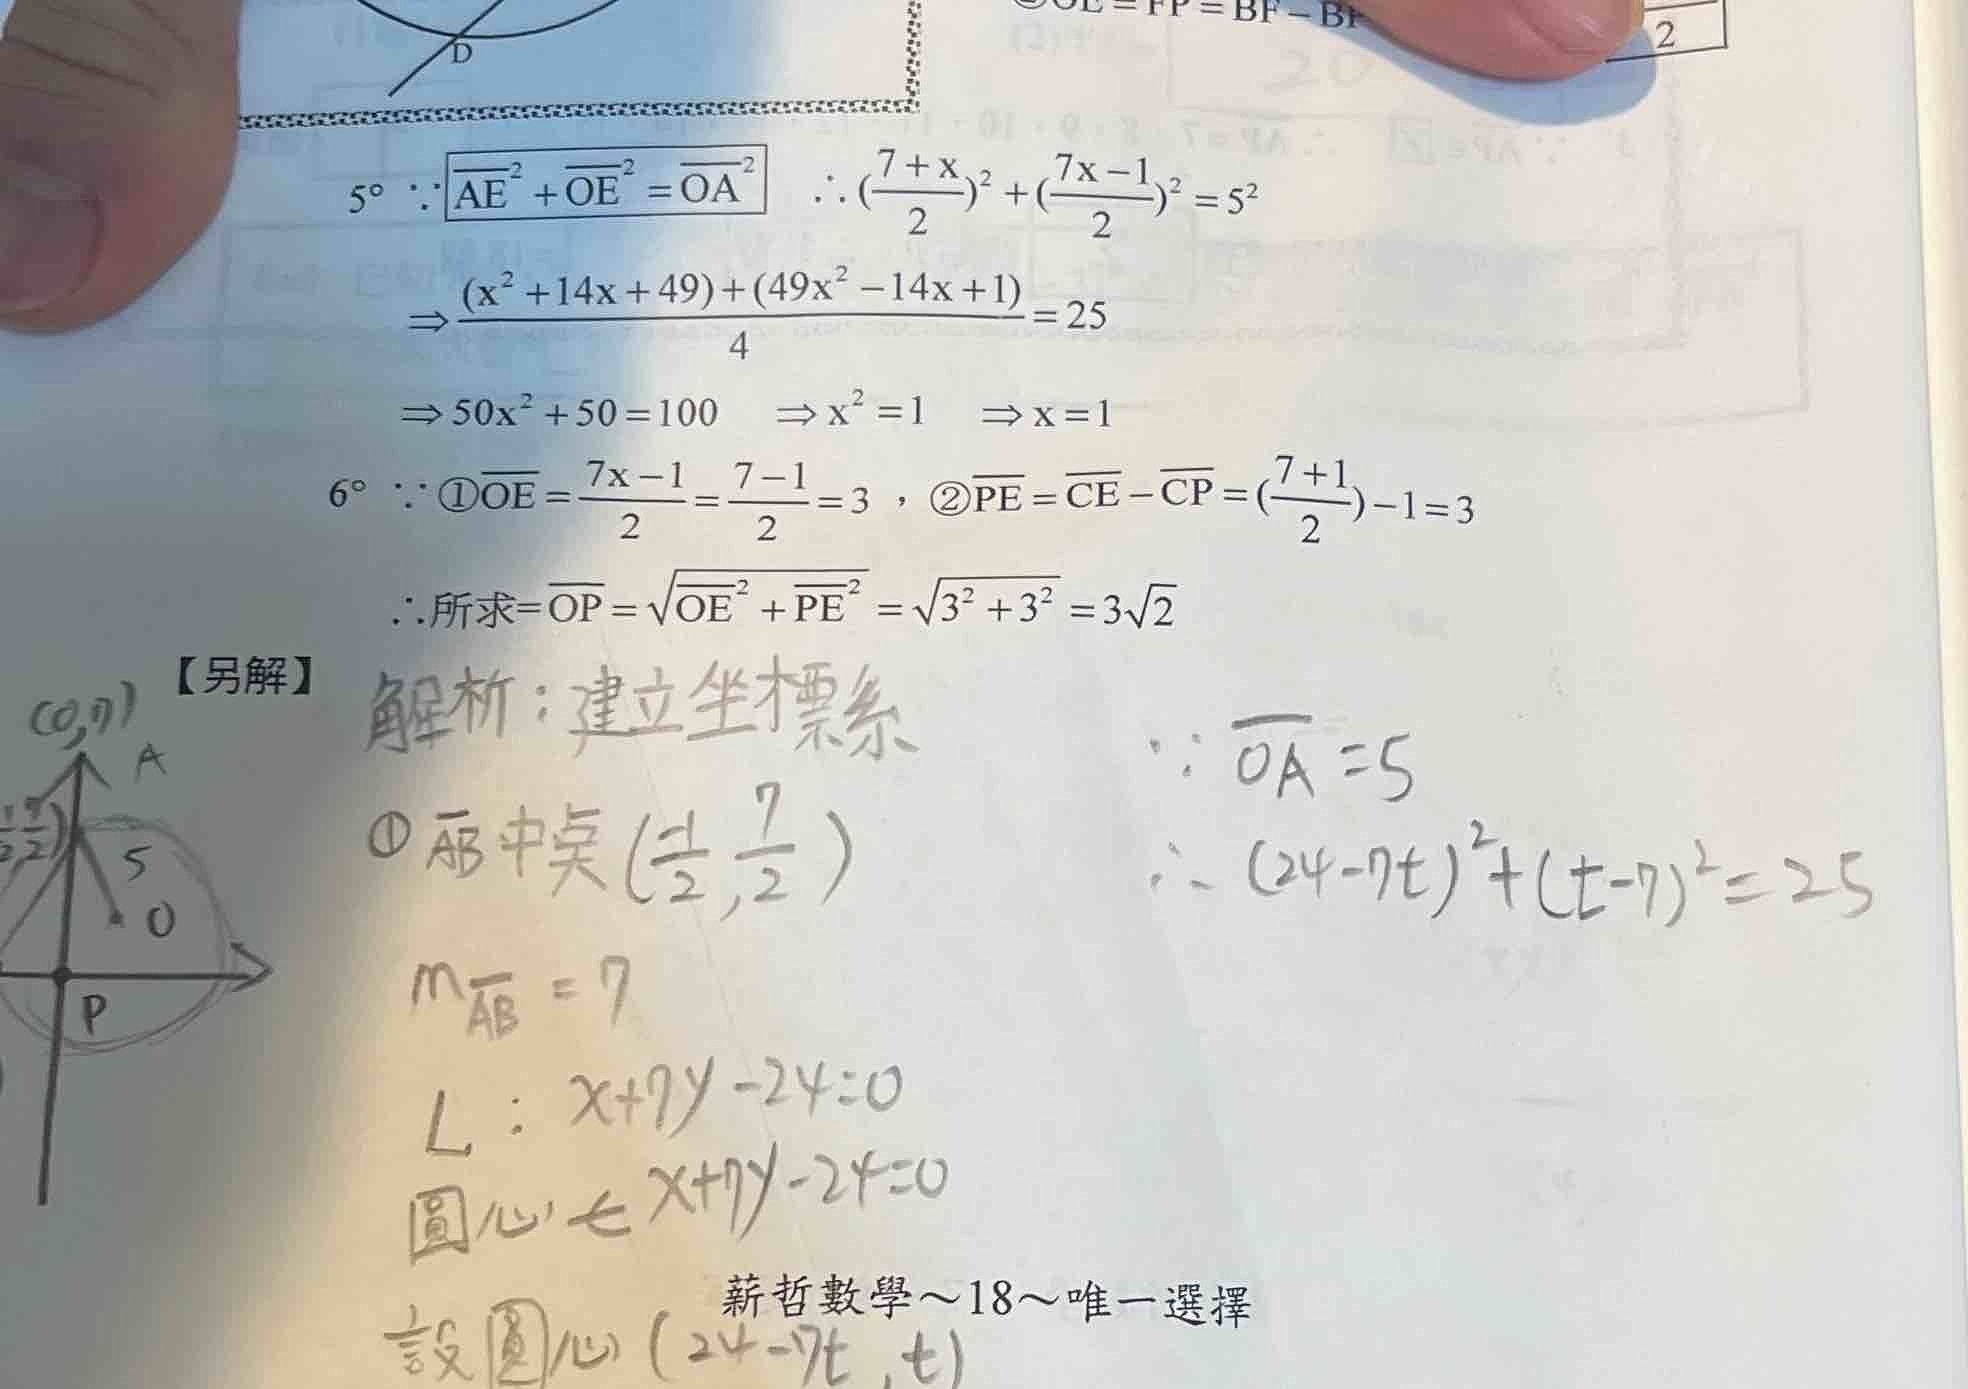 D
= FP = BF − BF
2
5° ∵ AE² + OE² = OA² ∴ ((7+x)/2)² + ((7x−1)/2)² = 5²
⇒ ((x² +14x + 49) + (49x² −14x +1))/4 = 25
⇒ 50x² + 50 = 100 ⇒ x² = 1 ⇒ x = 1
6° ∵ ①OE = (7x−1)/2 = (7−1)/2 = 3 , ②PE = CE − CP = ((7+1)/2) −1 = 3
∴所求= OP = √(OE² + PE²) = √(3² + 3²) = 3√2
【另解】
(0,7)
A
5
O
P
解析:建立坐標系
① AB 中点 (-1/2, 7/2)
m AB = 7
L : x+7y-24=0
圓心 ∈ x+7y-24=0
設圓心 (24-7t, t)
∵ OA = 5
∴ (24-7t)² + (t-7)² = 25
薪哲數學～18～唯一選擇